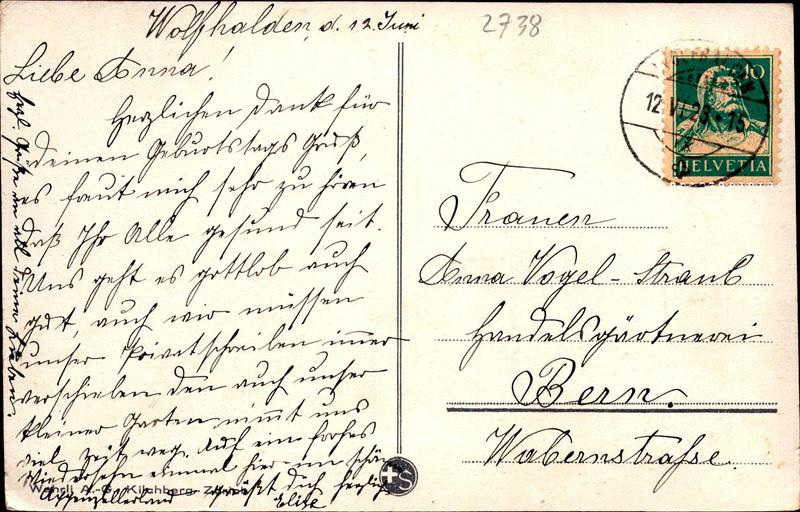 Wolfhalden, d. 12. Juni
2738
Liebe Anna!
Herzlichen Dank für
deinen Geburtstags Gruß,
es freut mich sehr zu hören
daß Ihr Alle gesund seit.
Uns geht es gottlob auch
gut, auch wir müssen
unser Privatschreiben immer
verschieben den auch unser
kleiner Garten nimmt uns
viel Zeit weg. Auf ein frohes
Wiedersehn einmal hier im schön
Appenzellerland grüßt dich herzlich
Elise
herzl. Grüße an all deine Lieben.
Wehrli A.-G. Kilchberg Zürich
S
10
HELVETIA
12.VI.23.15
Frauen
Anna Vogel-Straub
Handelsgärtnerei
Bern.
Wabernstraße.